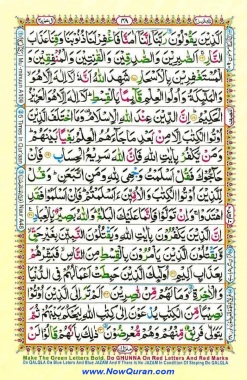 اَلَّذِيْنَ يَقُوْلُوْنَ رَبَّنَاۤ اِنَّنَاۤ اٰمَنَّا فَاغْفِرْ لَنَا ذُنُوْبَنَا وَقِنَا عَذَابَ
النَّارِ اَلصّٰبِرِيْنَ وَالصّٰدِقِيْنَ وَالْقٰنِتِيْنَ وَالْمُنْفِقِيْنَ وَ
الْمُسْتَغْفِرِيْنَ بِالْاَسْحَارِ شَهِدَ اللّٰهُ اَنَّهٗ لَاۤ اِلٰهَ اِلَّا هُوَ
وَالْمَلٰٓئِكَةُ وَاُولُوا الْعِلْمِ قَآئِمًاۢ بِالْقِسْطِ لَاۤ اِلٰهَ اِلَّا هُوَ
الْعَزِيْزُ الْحَكِيْمُ اِنَّ الدِّيْنَ عِنْدَ اللّٰهِ الْاِسْلَامُ وَمَا اخْتَلَفَ الَّذِيْنَ
اُوْتُوا الْكِتٰبَ اِلَّا مِنْۢ بَعْدِ مَا جَآءَهُمُ الْعِلْمُ بَغْيًاۢ بَيْنَهُمْ
وَمَنْ يَّكْفُرْ بِاٰيٰتِ اللّٰهِ فَاِنَّ اللّٰهَ سَرِيْعُ الْحِسَابِ فَاِنْ
حَآجُّوْكَ فَقُلْ اَسْلَمْتُ وَجْهِيَ لِلّٰهِ وَمَنِ اتَّبَعَنِ وَقُلْ
لِّلَّذِيْنَ اُوْتُوا الْكِتٰبَ وَالْاُمِّيّٖنَ ءَاَسْلَمْتُمْ فَاِنْ اَسْلَمُوْا فَقَدِ
اهْتَدَوْا وَاِنْ تَوَلَّوْا فَاِنَّمَا عَلَيْكَ الْبَلٰغُ وَاللّٰهُ بَصِيْرٌۢ بِالْعِبَادِ
اِنَّ الَّذِيْنَ يَكْفُرُوْنَ بِاٰيٰتِ اللّٰهِ وَيَقْتُلُوْنَ النَّبِيّٖنَ بِغَيْرِ حَقٍّ
وَّيَقْتُلُوْنَ الَّذِيْنَ يَاْمُرُوْنَ بِالْقِسْطِ مِنَ النَّاسِ فَبَشِّرْهُمْ
بِعَذَابٍ اَلِيْمٍ اُولٰٓئِكَ الَّذِيْنَ حَبِطَتْ اَعْمَالُهُمْ فِي الدُّنْيَا
وَالْاٰخِرَةِ وَمَا لَهُمْ مِّنْ نّٰصِرِيْنَ اَلَمْ تَرَ اِلَى الَّذِيْنَ اُوْتُوْا
نَصِيْبًا مِّنَ الْكِتٰبِ يُدْعَوْنَ اِلٰى كِتٰبِ اللّٰهِ لِيَحْكُمَ بَيْنَهُمْ ثُمَّ
يَتَوَلّٰى فَرِيْقٌ مِّنْهُمْ وَهُمْ مُّعْرِضُوْنَ ذٰلِكَ بِاَنَّهُمْ قَالُوْا لَنْ
Make The Green Letters Bold, Do GHUNNA On Red Letters And Red Marks
Do QALQLA On Blue Letters And Blue JAZAM And If There Is No JAZAM In Condition Of Stoping Do QALQLA
www.NowQuran.com